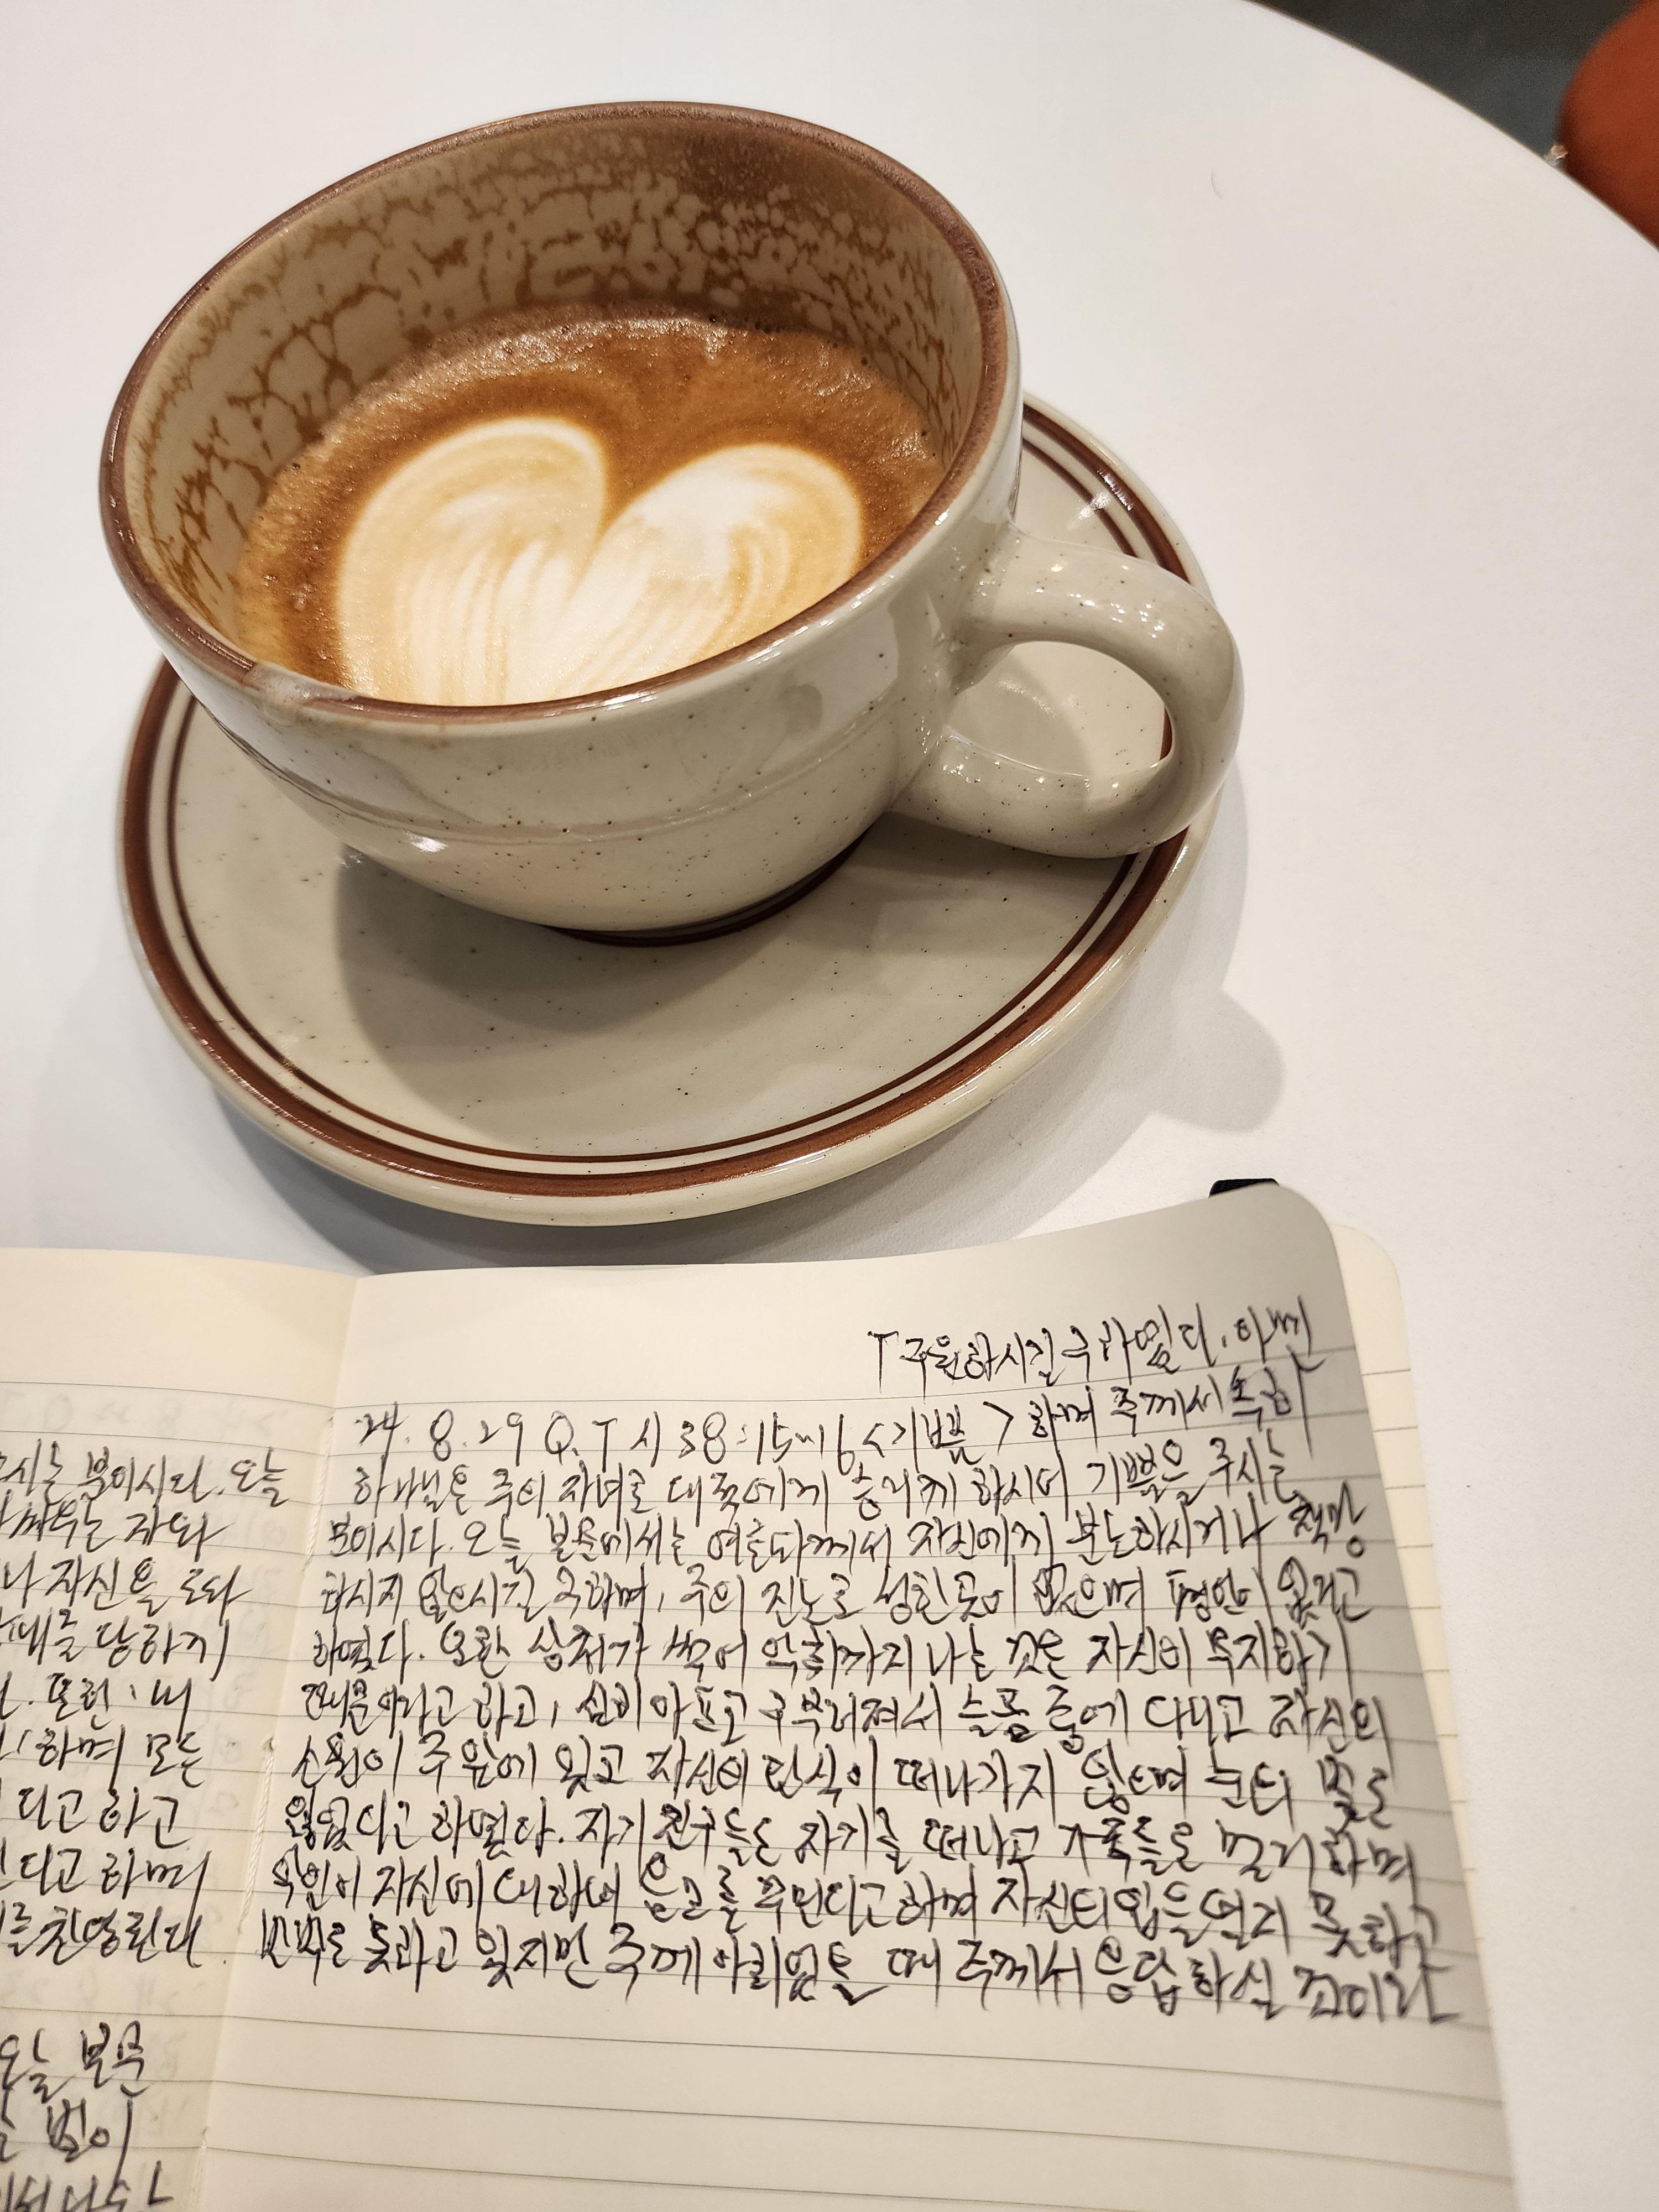 오시는 분이시다. 오늘
싸우는 자와
나 자신을
를 당하게
또한, 내
하며 모든
다고 하고
다고 하며
를 찬양한다
오늘 본문
벌이
구원하시길 구하였다. 아멘
하며 주께서 속히
24. 8. 29 Q.T 시 38:15~16 <기쁨>
하나님은 주의 자녀로 대적에게 승리케 하시며 기쁨을 주시는
분이시다. 오늘 본문에서는 여호와께서 자신에게 분노하시거나 책망
하시지 않으시길 구하며, 주의 진노로 성한 곳이 없으며 평안이 없다고
하였다. 또한 상처가 썩어 악취까지 나는 것은 자신이 무지하기
때문이라고 하고, 심히 아프고 구부러져서 슬픔 중에 다니고 자신의
소원이 주 앞에 있고 자신의 탄식이 떠나가지 않으며 눈의 빛도
잃었다고 하였다. 자기 친구들도 자기를 떠나고 가족들도 멀리하며
악인이 자신에 대하여 음모를 꾸민다고 하며 자신의 입을 열지 못하고
반박도 못하고 있지만 주께 아뢰었을 때 주께서 응답하실 것이라